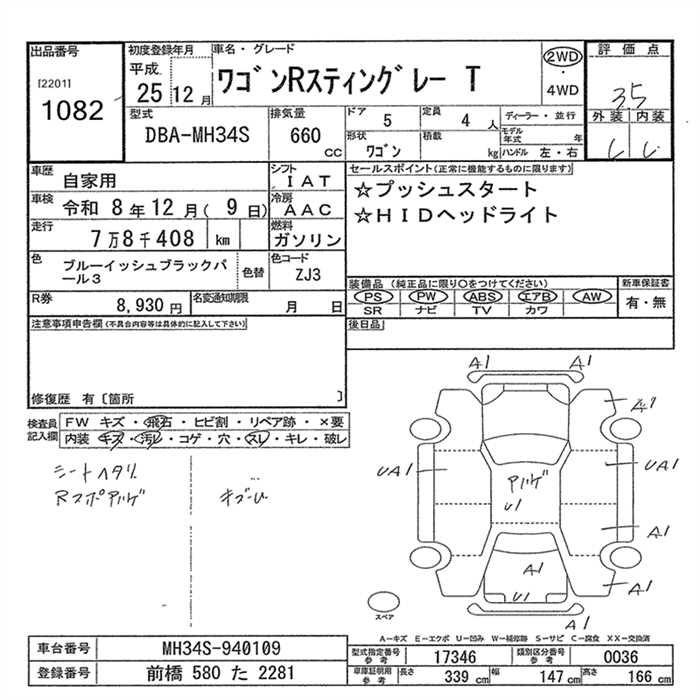 出品番号
[2201]
1082
初度登録年月
平成
25 12 月
車名・グレード
ワゴンRスティングレー T
2WD
・
4WD
評価点
3.5
外装 内装
型式
DBA-MH34S
排気量
660
CC
ドア
5
定員
4 人
形状
ワゴン
積載
kg
ディーラー・並行
モデル年式 年
ハンドル 左・右
車歴
自家用
シフト
IAT
車検
令和 8年12月( 9日)
冷房
AAC
走行
7万8千408 km
燃料
ガソリン
色
ブルーイッシュブラックパール3
色替
色コード
ZJ3
R券
8,930 円
名変通知期限
月 日
セールスポイント(正常に機能するものに限ります)
☆プッシュスタート
☆HIDヘッドライト
装備品(純正品に限り○をつけてください)
PS PW ABS エアB AW
SR ナビ TV カワ
新車保証書
有・無
後日品
注意事項申告欄(不具合内容等は具体的に記入して下さい)
修復歴 有〔箇所 〕
検査員記入欄
FW キズ・飛石・ヒビ割・リペア跡・×要
内装 キズ・汚レ・コゲ・穴・スレ・キレ・破レ
シートヘタリ
Rスポアハゲ
A1 A1
A1
UA1 UA1
アハゲ
U1
A1
A1 A1
U1
A1
スペア
A―キズ E―エクボ U―凹み W―補修跡 S―サビ C―腐食 XX―交換済
車台番号
MH34S-940109
登録番号
前橋 580 た 2281
型式指定番号
参考
17346
類別区分番号
参考
0036
車庫証明用
参考
長さ 339 cm 幅 147 cm 高さ 166 cm